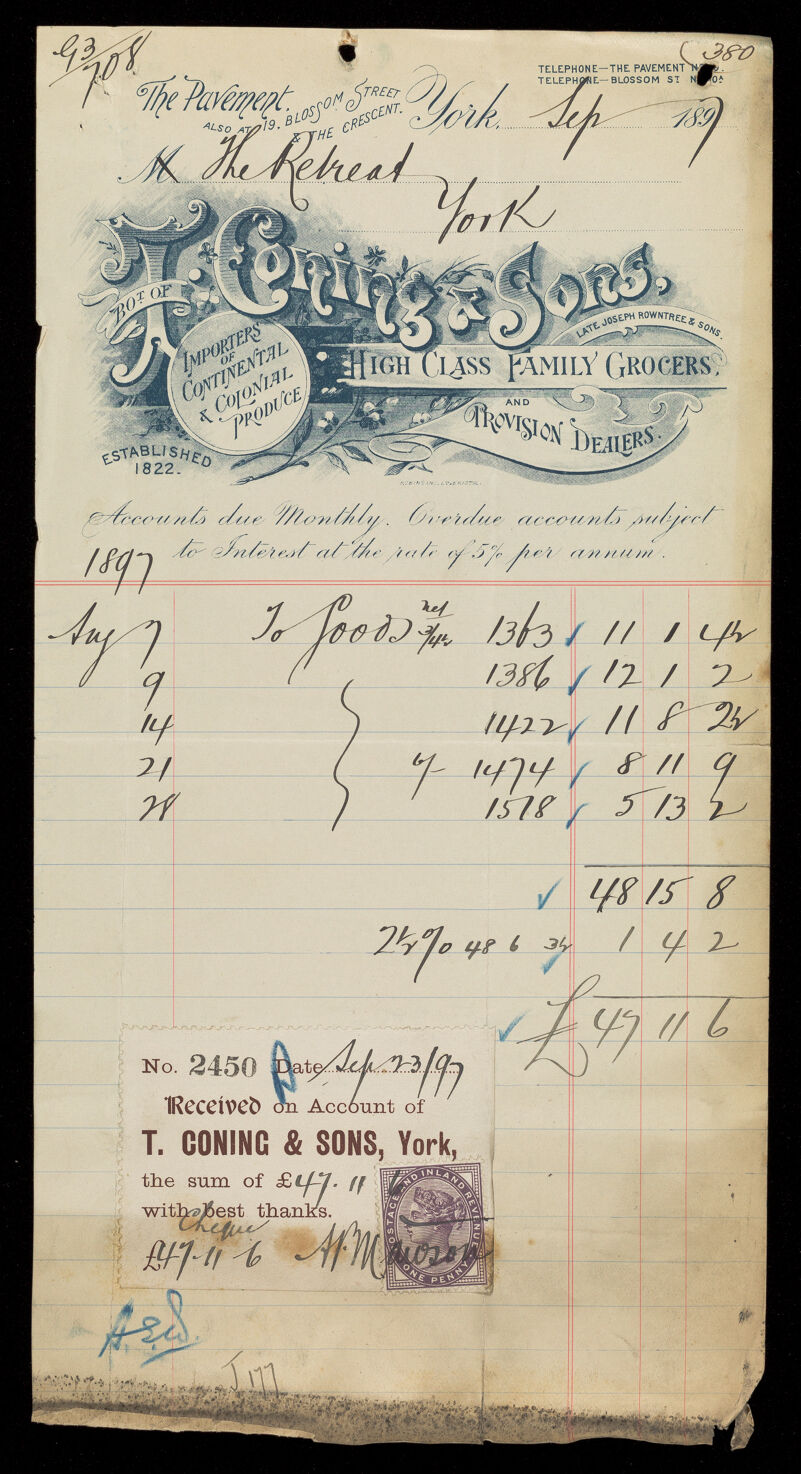 G3/708
(380
TELEPHONE—THE PAVEMENT
TELEPHONE—BLOSSOM ST
The Pavement.
ALSO AT 19. BLOSSOM STREET
& THE CRESCENT.
York, Sep 1897
M The Retreat
York
BOT OF T. Coning & Sons,
LATE JOSEPH ROWNTREE & SONS.
IMPORTERS
OF
CONTINENTAL
& COLONIAL
PRODUCE
HIGH CLASS FAMILY GROCERS,
AND
PROVISION DEALERS.
ESTABLISHED
1822.
Accounts due Monthly. Overdue accounts subject
to Interest at the rate of 5% per annum.
1897
Aug 7 To Goods net 3/4½ 1363 11 1 4½
9 1386 12 1 2
14 1422 11 8 2½
21 1474 8 11 9
28 1518 5 13 2
48 15 8
2½% 48 6 3½ 1 4 2
£ 47 11 6
No. 2450 Date Sep 23/97
Received on Account of
T. CONING & SONS, York,
the sum of £47.11
with best thanks.
Cheque
£47-11 6
POSTAGE AND INLAND REVENUE
ONE PENNY
A.E.W.
J 177